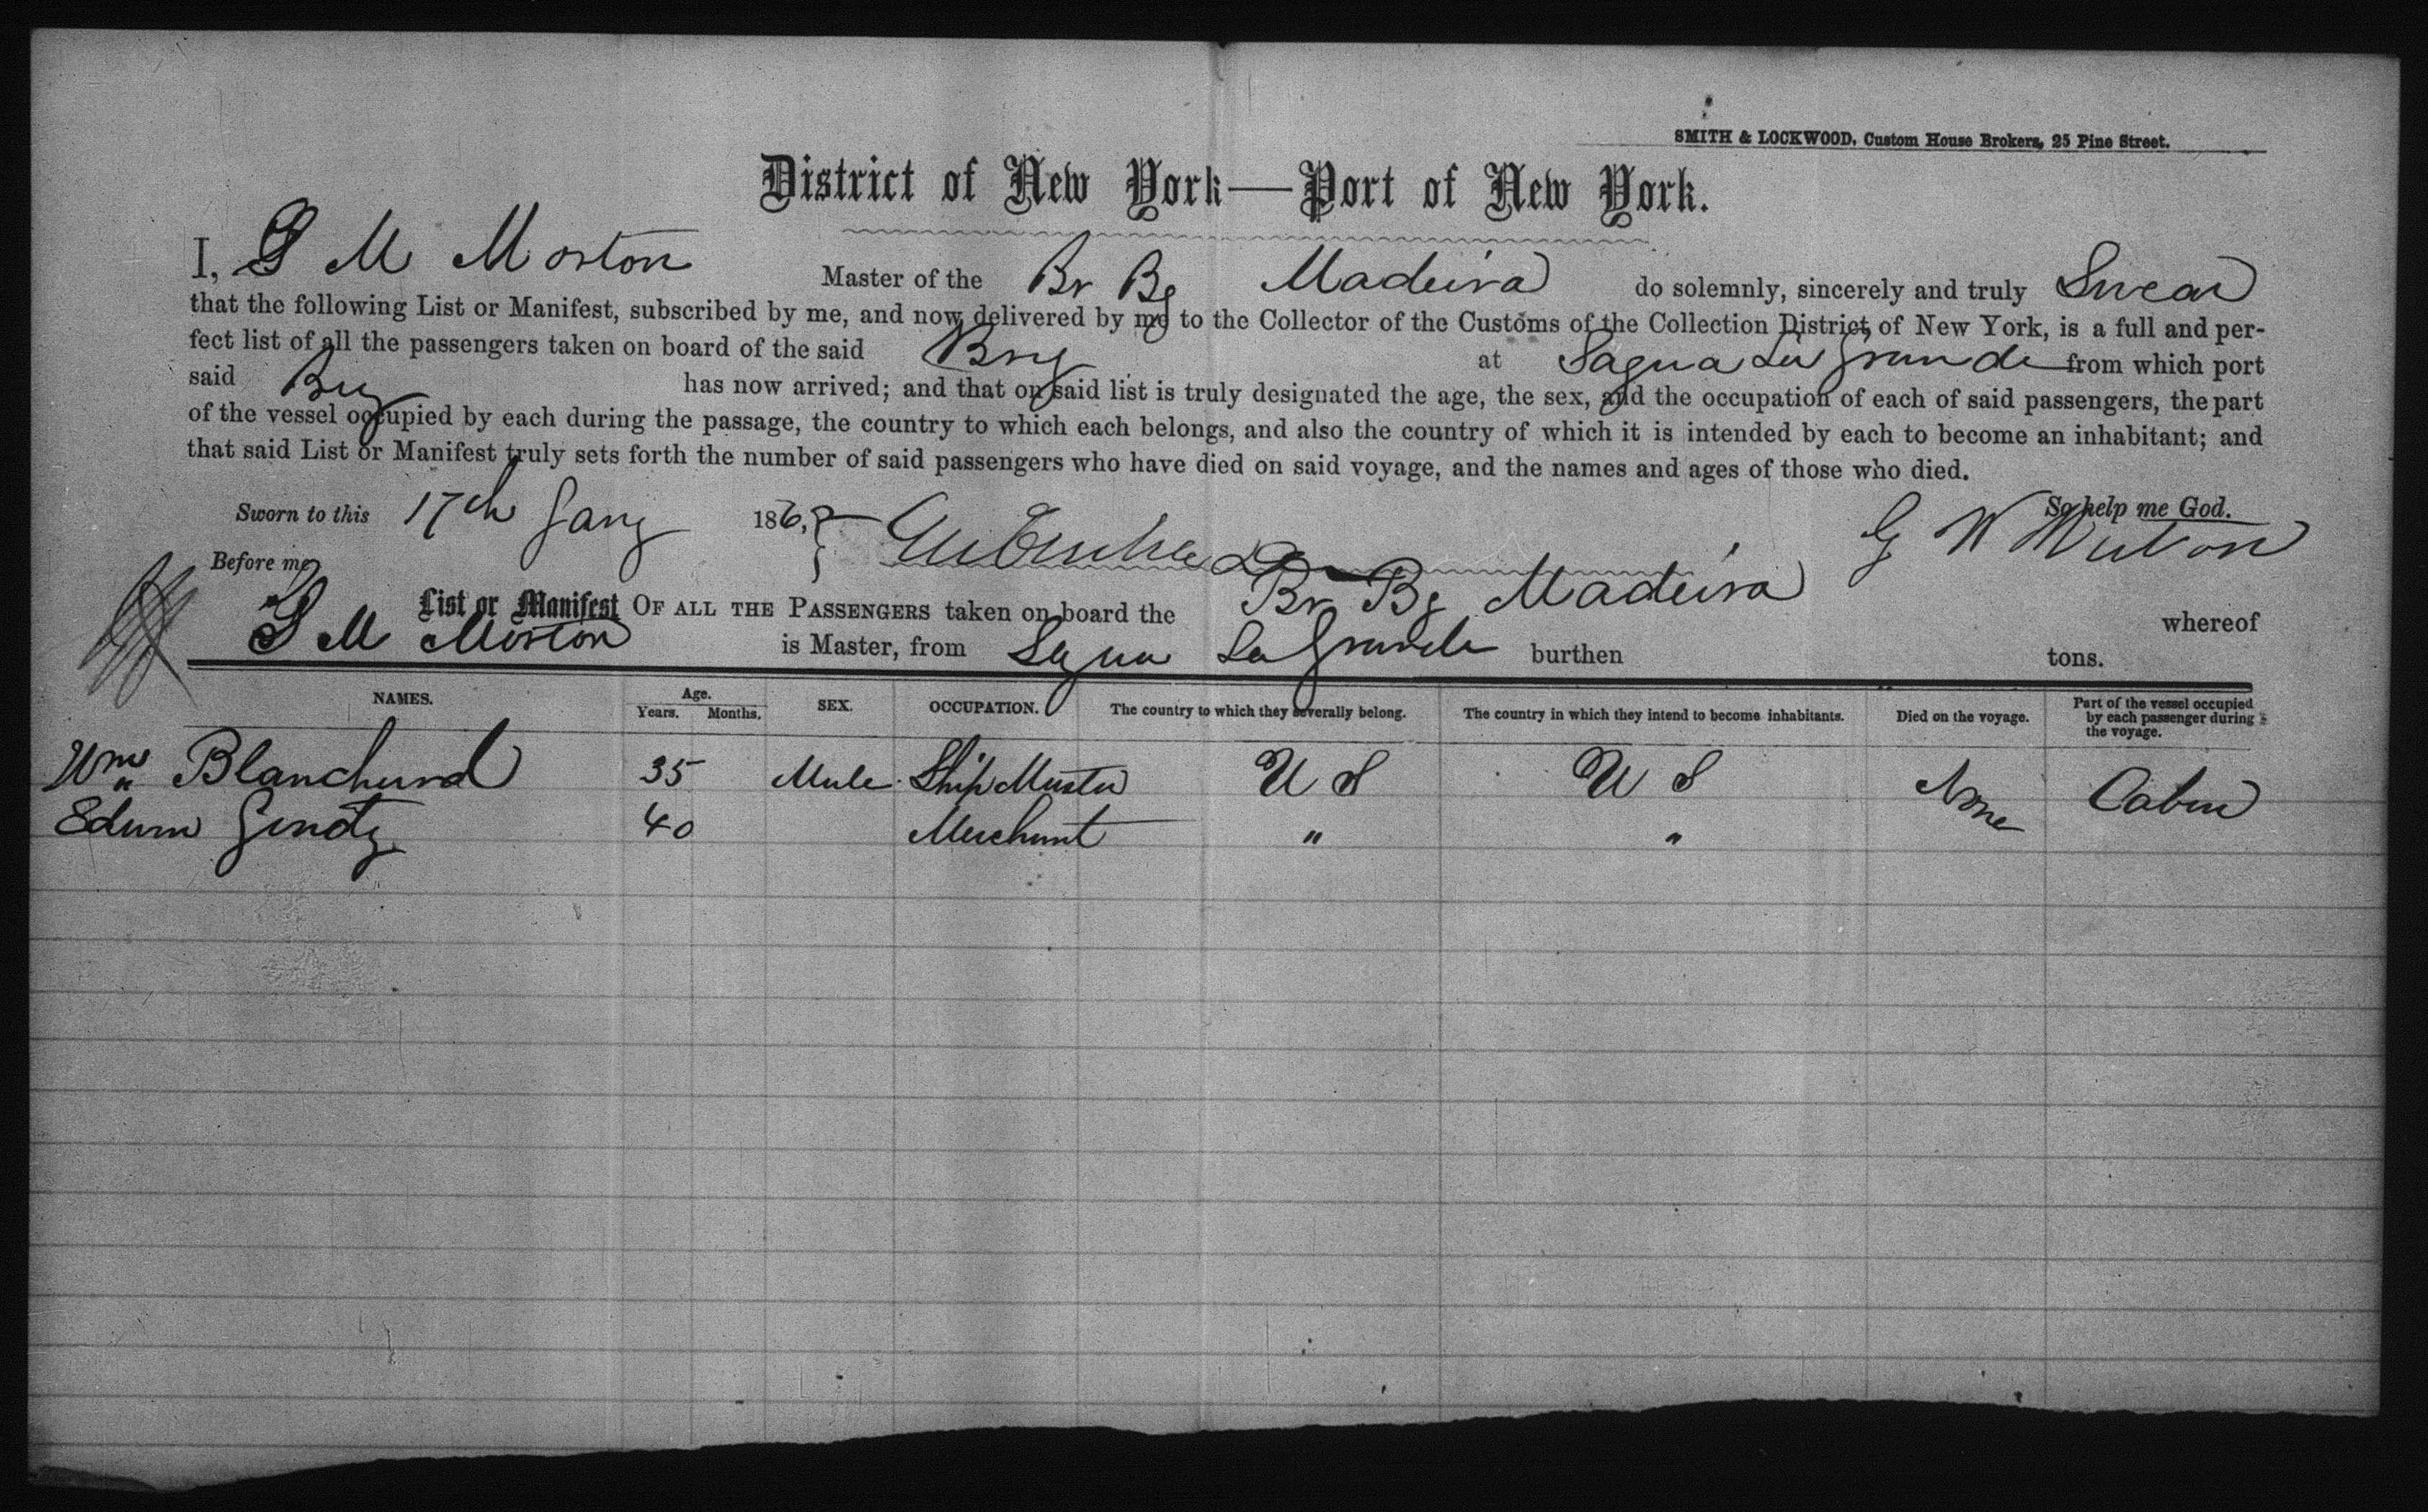 SMITH & LOCKWOOD, Custom House Brokers, 25 Pine Street.
District of New York—Port of New York.
I, G M Morton Master of the Br Bg Madeira do solemnly, sincerely and truly Swear
that the following List or Manifest, subscribed by me, and now delivered by me to the Collector of the Customs of the Collection District of New York, is a full and per-
fect list of all the passengers taken on board of the said Brig at Sagua La Grande from which port
said Brig has now arrived; and that on said list is truly designated the age, the sex, and the occupation of each of said passengers, the part
of the vessel occupied by each during the passage, the country to which each belongs, and also the country of which it is intended by each to become an inhabitant; and
that said List or Manifest truly sets forth the number of said passengers who have died on said voyage, and the names and ages of those who died.
So help me God.
Sworn to this 17th Jany 186
G
Before me
List or Manifest OF ALL THE PASSENGERS taken on board the Br Bg Madeira whereof
G M Morton is Master, from Sagua La Grande burthen tons.
NAMES. Age. Years. Months. SEX. OCCUPATION. The country to which they severally belong. The country in which they intend to become inhabitants. Died on the voyage. Part of the vessel occupied by each passenger during the voyage.
Wm Blanchard 35 Male Ship Master U S U S None Cabin
Edwin 40 Merchant " "